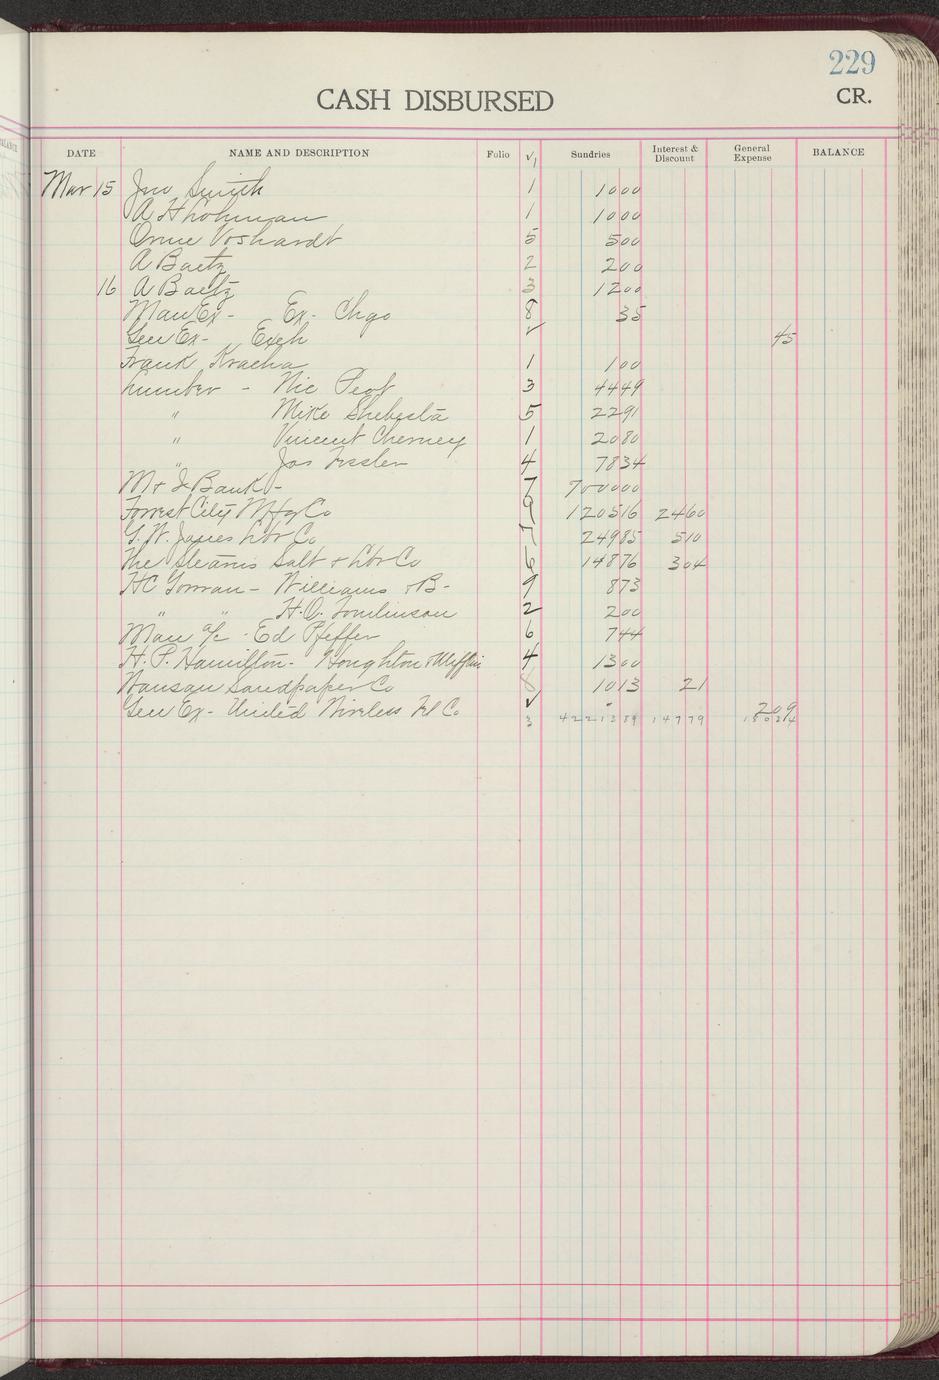 229
CASH DISBURSED CR.
DATE NAME AND DESCRIPTION Folio √ Sundries Interest & Discount General Expense BALANCE
Mar 15 Jno Smith 1 1000
A H Lohman 1 1000
Orme Voshardt 5 500
A Baetz 2 200
16 A Baetz 3 1200
Man Ex - Ex - Chgo 8 35
Gen Ex - Exch ✓ 45
Frank Kracha 1 100
Lumber - Nic Peot 3 4449
" Mike Shebesta 5 2291
" Vincent Cherney 1 2080
" Jos Fessler 4 7834
M & I Bank - 7 700000
Forrest City Mfg Co 9 120516 2460
G. W. Jones Lbr Co 7 24985 510
The Stearns Salt & Lbr Co 6 14876 304
HC Gorman - Williams & B - 9 873
" " H.O. Tomlinson 2 200
Man a/c - Ed Pfeffer 6 744
H. P. Hamilton - Houghton & Mifflin 4 1300
Wausau Sandpaper Co 8 1013 21
Gen Ex - United Wireless Tel Co ✓ 209
3 4221389 14779